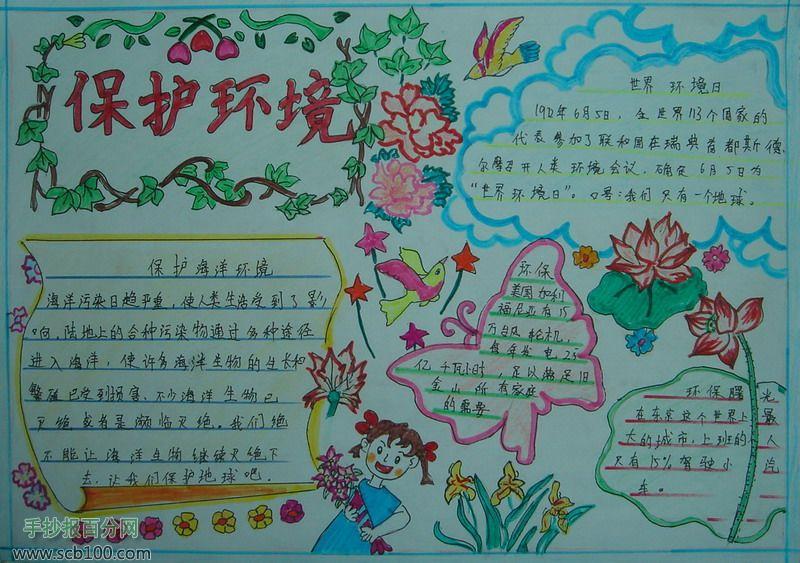 保护环境
世界 环境日
1972年6月5日，在世界113个国家的
代表参加了联和国在瑞典首都斯德
尔摩召开人类环境会议。确定6月5日为
“世界环境日”。口号：我们只有一个地球。
保护海洋环境
海洋污染日趋严重，使人类生活受到了影
响，陆地上的各种污染物通过多种途径
进入海洋，使许多海洋生物的生长和
繁殖已受到损害，不少海洋生物已
灭绝或者是濒临灭绝。我们绝
不能让海洋生物继续灭绝下
去，让我们保护地球吧。
环保
美国加利
福尼亚有15
万台风轮机，
每年发电25
亿千瓦小时，足以满足旧
金山所有家庭
的需要
环保曙光
在东京这个世界上最
大的城市，上班的人
只有15%驾驶小汽
车。
手抄报百分网
www.scb100.com